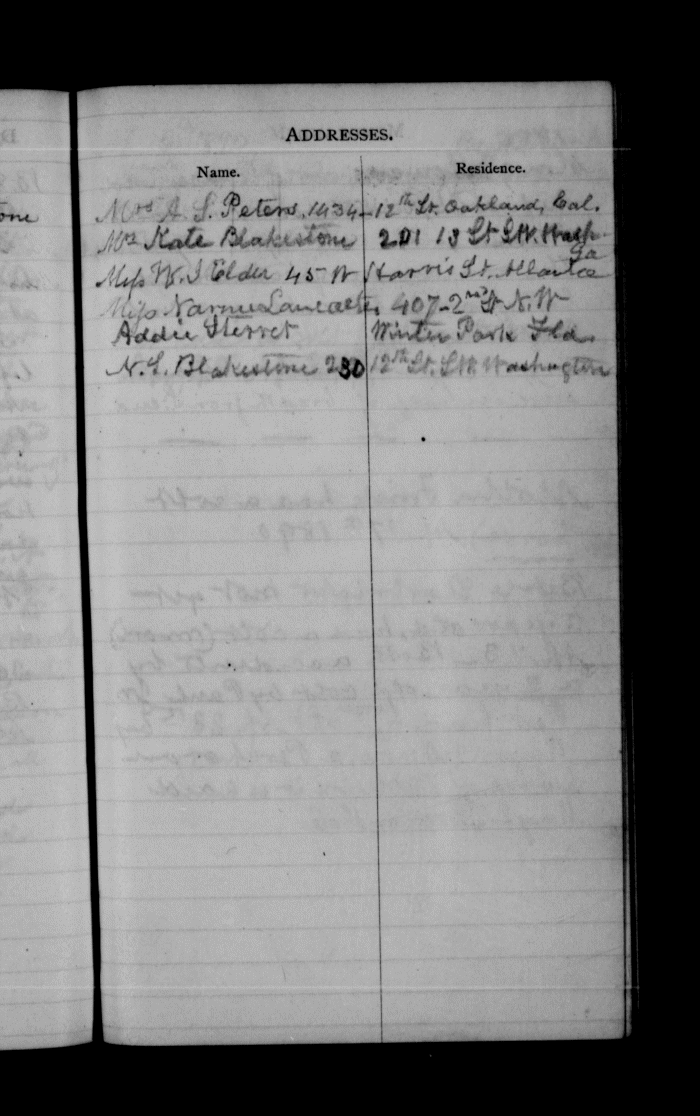 ADDRESSES.
Name. Residence.
Mrs A. S. Peters, 1434-12th St. Oakland, Cal.
Mrs Kate Blakestone 201 13 St S.W. Wash.
Ga
Miss W. J Elder 45 W Harris St. Atlanta
Miss Lancaster, 407-2nd St N.W
Addie Sterret Winter Park Fld.
N. S. Blakestone 230 12th St. S.W. Washington